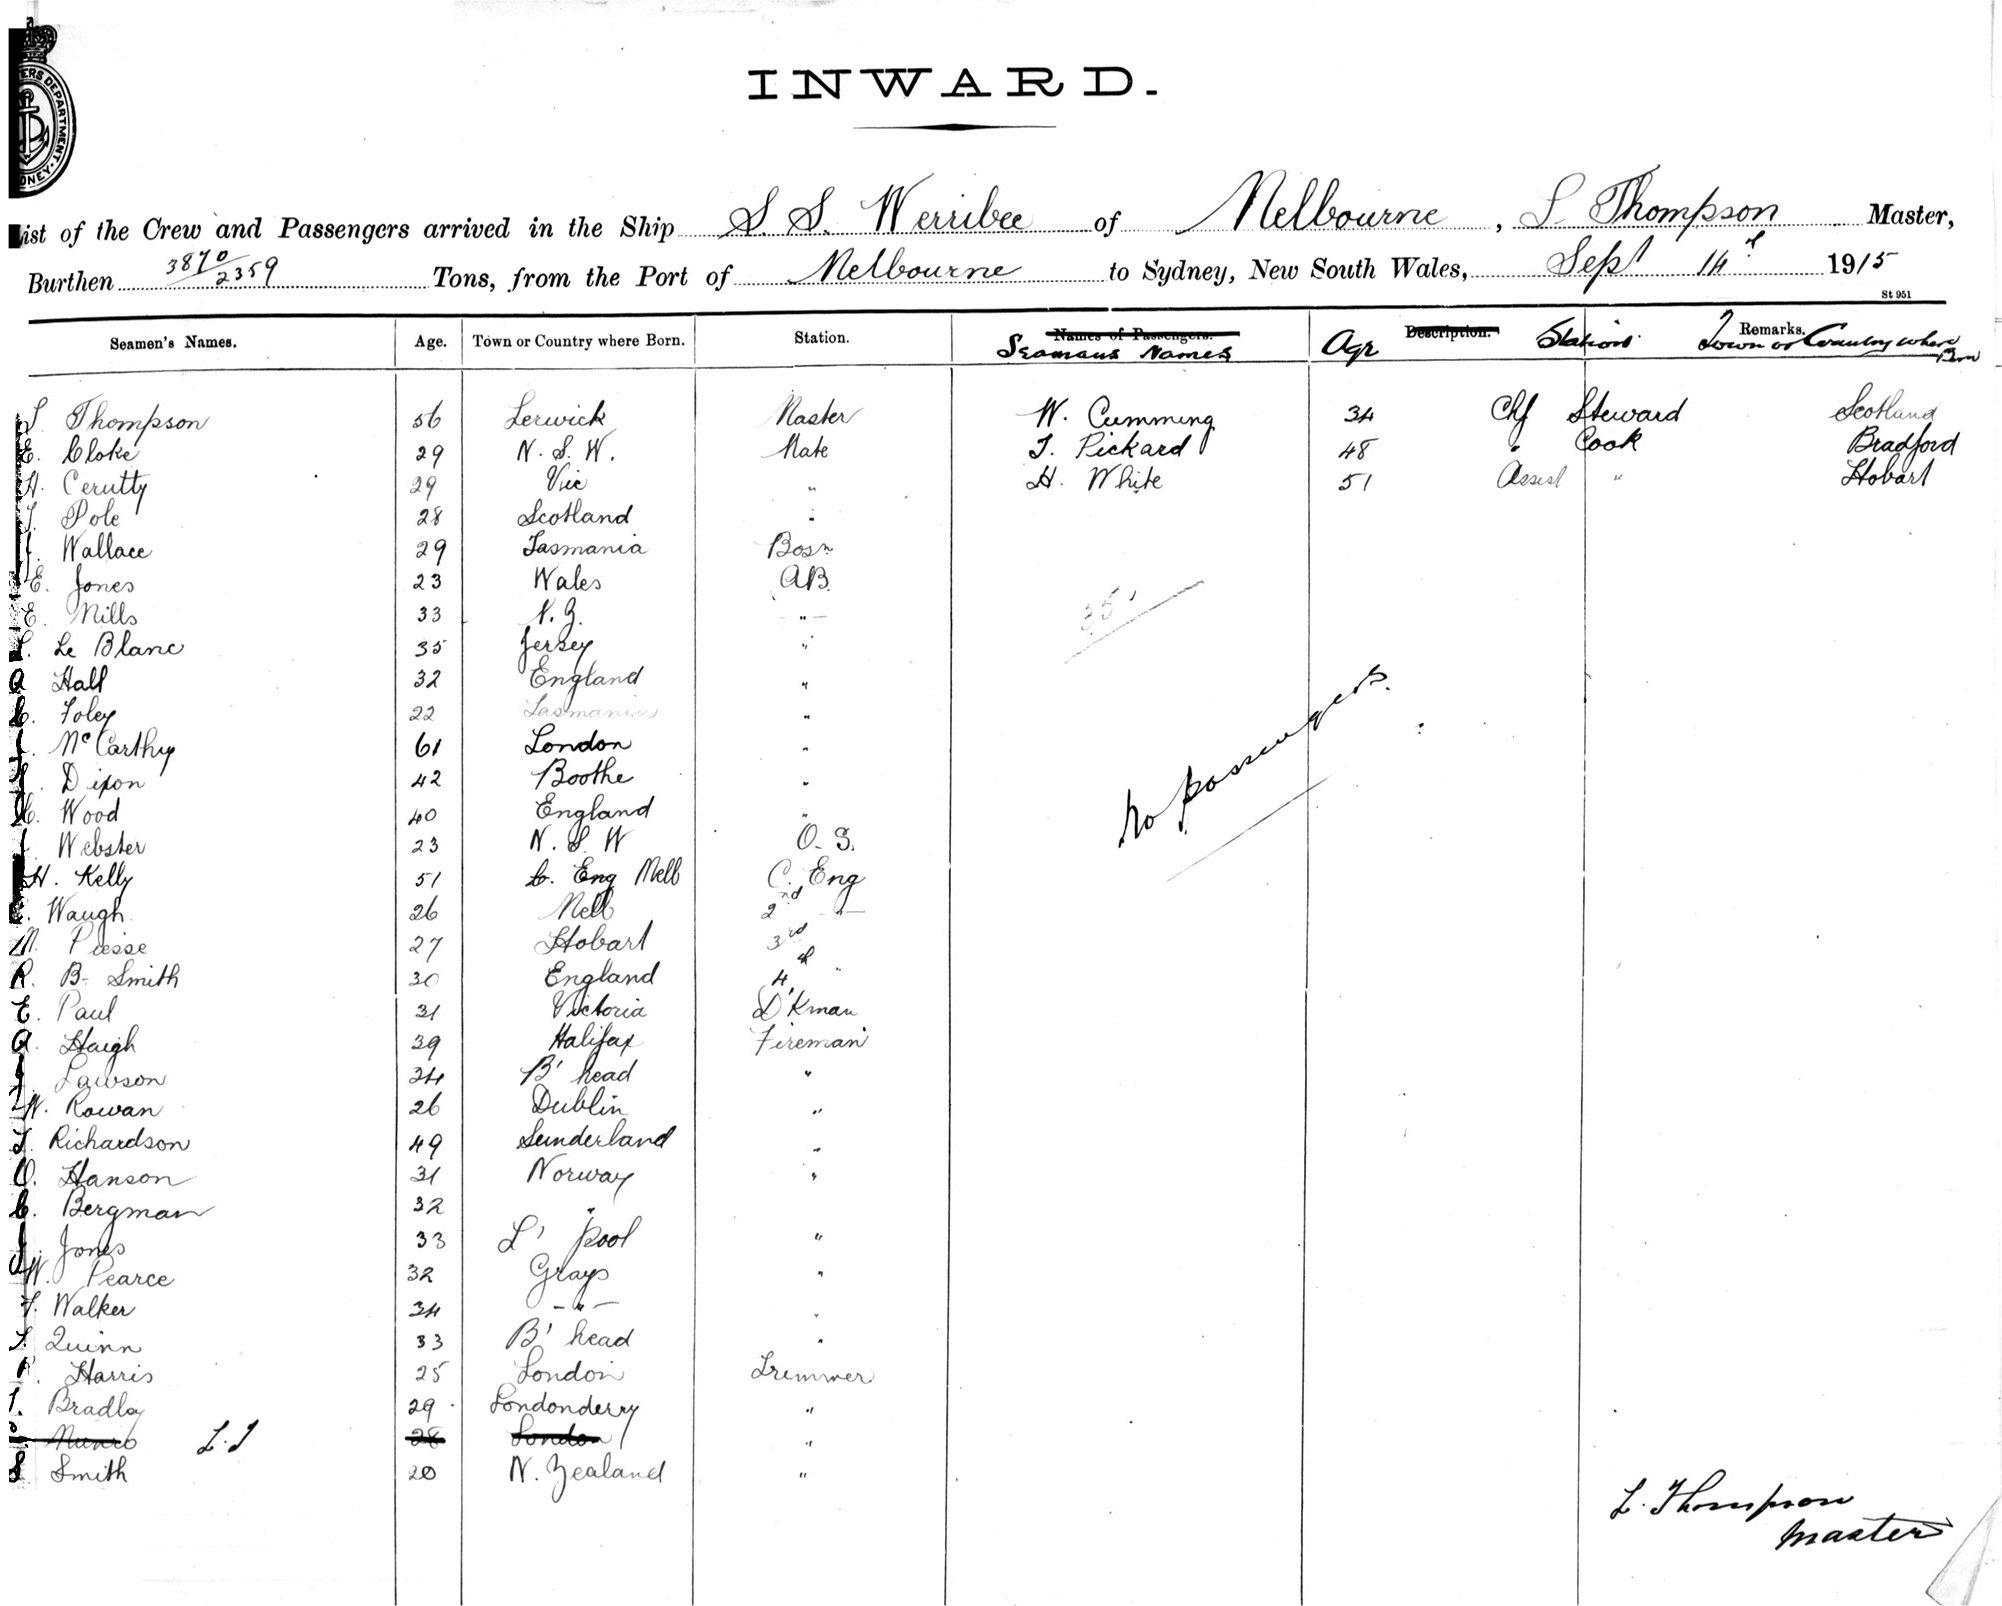 INWARD.
List of the Crew and Passengers arrived in the Ship S. S. Werribee of Melbourne, L. Thompson Master,
Burthen 3870/2359 Tons, from the Port of Melbourne to Sydney, New South Wales, Sept 14th 1915
St 951
Seamen's Names. Age. Town or Country where Born. Station. Names of Passengers. Description. Remarks.
Seamans Names Age Station Town or Country where Born
Thompson 56 Lerwick Master W. Cumming 34 Chf Steward Scotland
E. Cloke 29 N. S. W. Mate T. Pickard 48 " Cook Bradford
H. Cerutty 29 Vic " H. White 51 Assist " Hobart
Pole 28 Scotland "
Wallace 29 Tasmania Bosn
E. Jones 23 Wales AB.
E. Mills 33 N. Z. "
Le Blanc 35 Jersey "
Hall 32 England "
Foley 22 Tasmania "
McCarthy 61 London "
Dixon 42 Boothe "
C. Wood 40 England "
Webster 23 N. S. W O. S.
H. Kelly 51 C. Eng Melb C. Eng
Waugh 26 Melb 2nd "
M. Piesse 27 Hobart 3rd
R. B. Smith 30 England 4th "
E. Paul 31 Victoria D'Kman
A. Haigh 39 Halifax Fireman
Lawson 24 B' head "
W. Rowan 26 Dublin "
Richardson 49 Sunderland "
O. Hanson 31 Norway "
C. Bergman 32 "
Jones 33 L' pool "
W. Pearce 32 Grays "
F. Walker 34 " "
Quinn 33 B' head "
Harris 25 London Trimmer
Bradley 29 Londonderry "
Munro L.T 28 London "
Smith 20 N. Zealand "
35
No passengers.
L. Thompson
Master